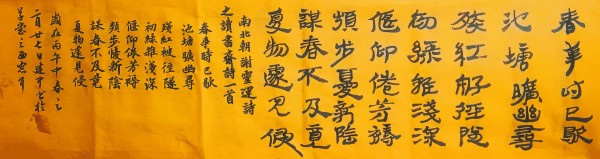 春事時已歇
池塘曠幽尋
殘紅被徑隧
初綠雜淺深
偃仰倦芳褥
頻步憂新陰
謀春不及竟
夏物遽見侵
南北朝謝靈運詩
之讀書齋詩一首
春事時已歇
池塘曠幽尋
殘紅被徑隧
初綠雜淺深
偃仰倦芳褥
頻步憂新陰
謀春不及竟
夏物遽見侵
歲在丙午中春之
二月廿七日建中書於
之西窗下